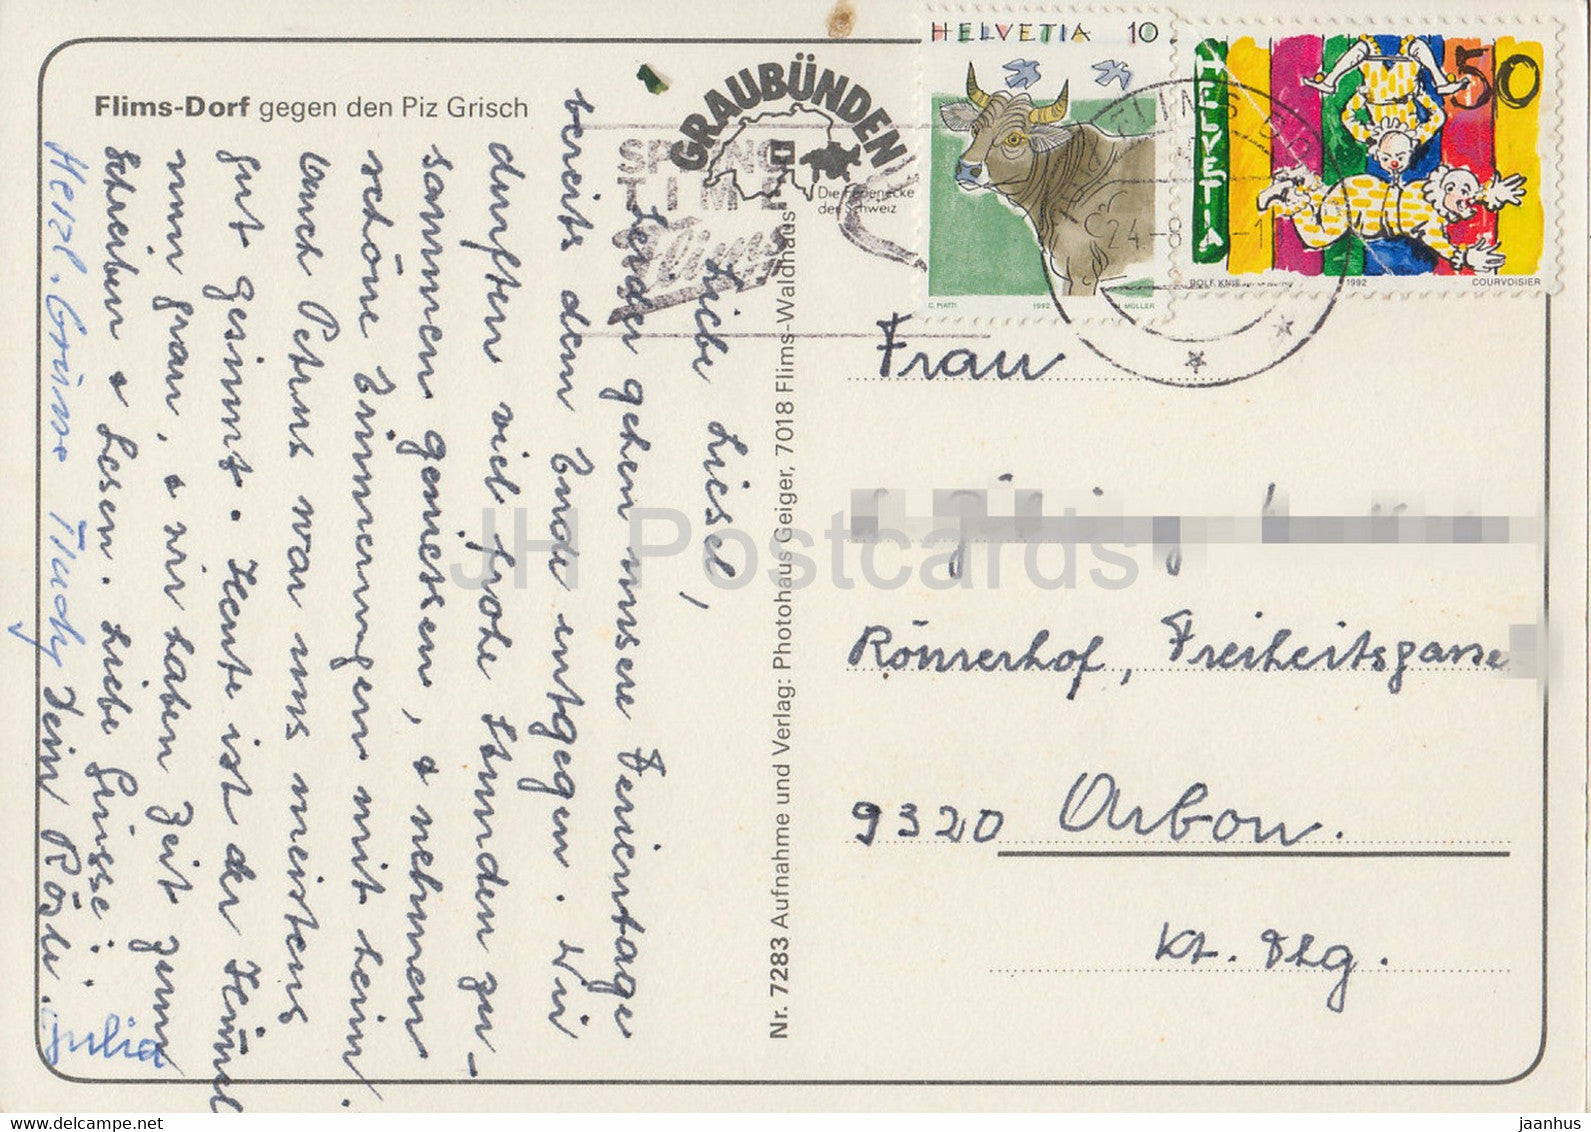 Flims-Dorf gegen den Piz Grisch
GRAUBÜNDEN
Die Ferienecke
der Schweiz
SPRING
TIME
Flims
HELVETIA 10
C. PIATTI 1992 H. MÜLLER
HELVETIA
50
ROLF KNIE 1992 COURVOISIER
FLIMS DORF
24-8
Liebe Liesel,
Leider gehen unsere Ferientage
bereits dem Ende entgegen. Wir
durften viel frohe Stunden zu-
sammen geniessen, & nehmen
schöne Erinnerungen mit heim.
Auch Petrus war uns meistens
gut gesinnt. Heute ist der Himmel
nun grau, & wir haben Zeit zum
Schreiben & Lesen. Liebe Grüsse:
Dein Rösli.
Herzl. Grüsse Trudy
Julia
Nr. 7283 Aufnahme und Verlag: Photohaus Geiger, 7018 Flims-Waldhaus
Frau
Römerhof, Freiheitsgasse
9320 Arbon.
Kt. Thg.
JH Postcards
jaanhus